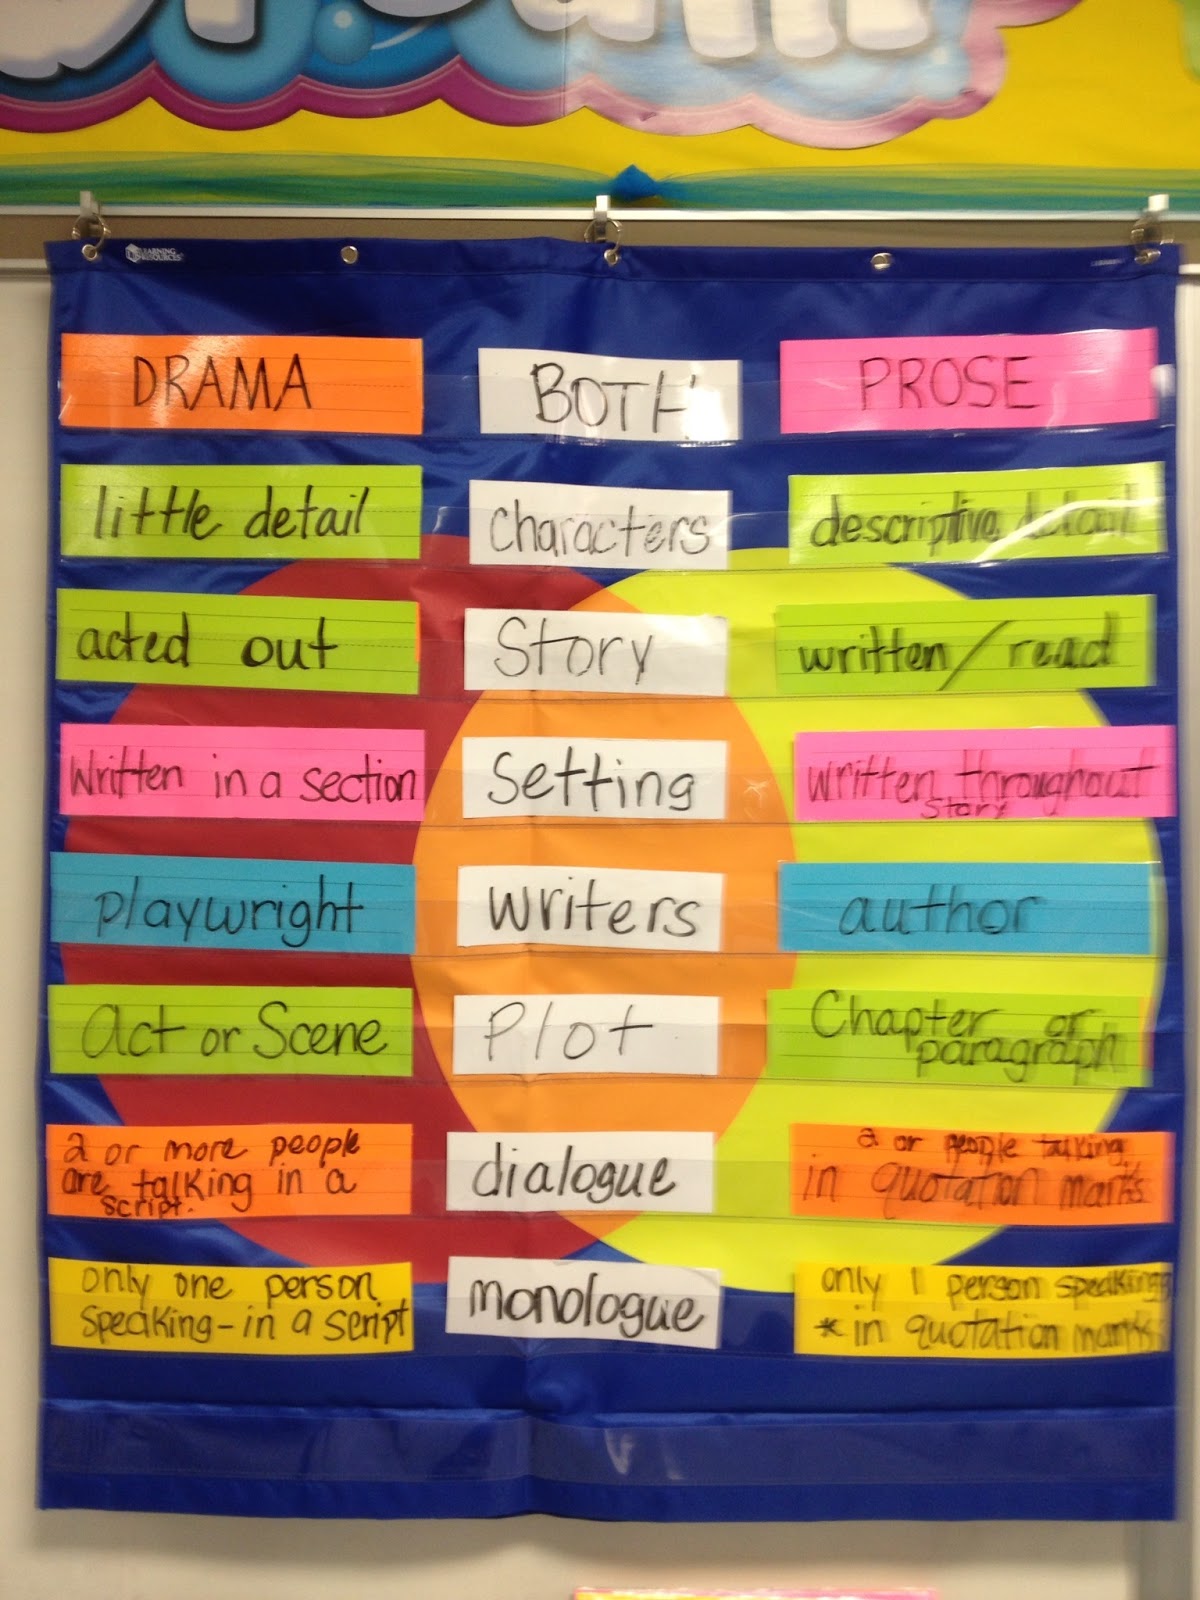 LEARNING
RESOURCES
DRAMA
BOTH
PROSE
little detail
characters
descriptive detail
acted out
Story
written/read
Written in a section
Setting
written throughout
story
playwright
writers
author
Act or Scene
Plot
Chapter or
paragraph
2 or more people
are talking in a
script.
dialogue
2 or people talking
in quotation marks
only one person
speaking-in a script
monologue
only 1 person speaking
* in quotation marks